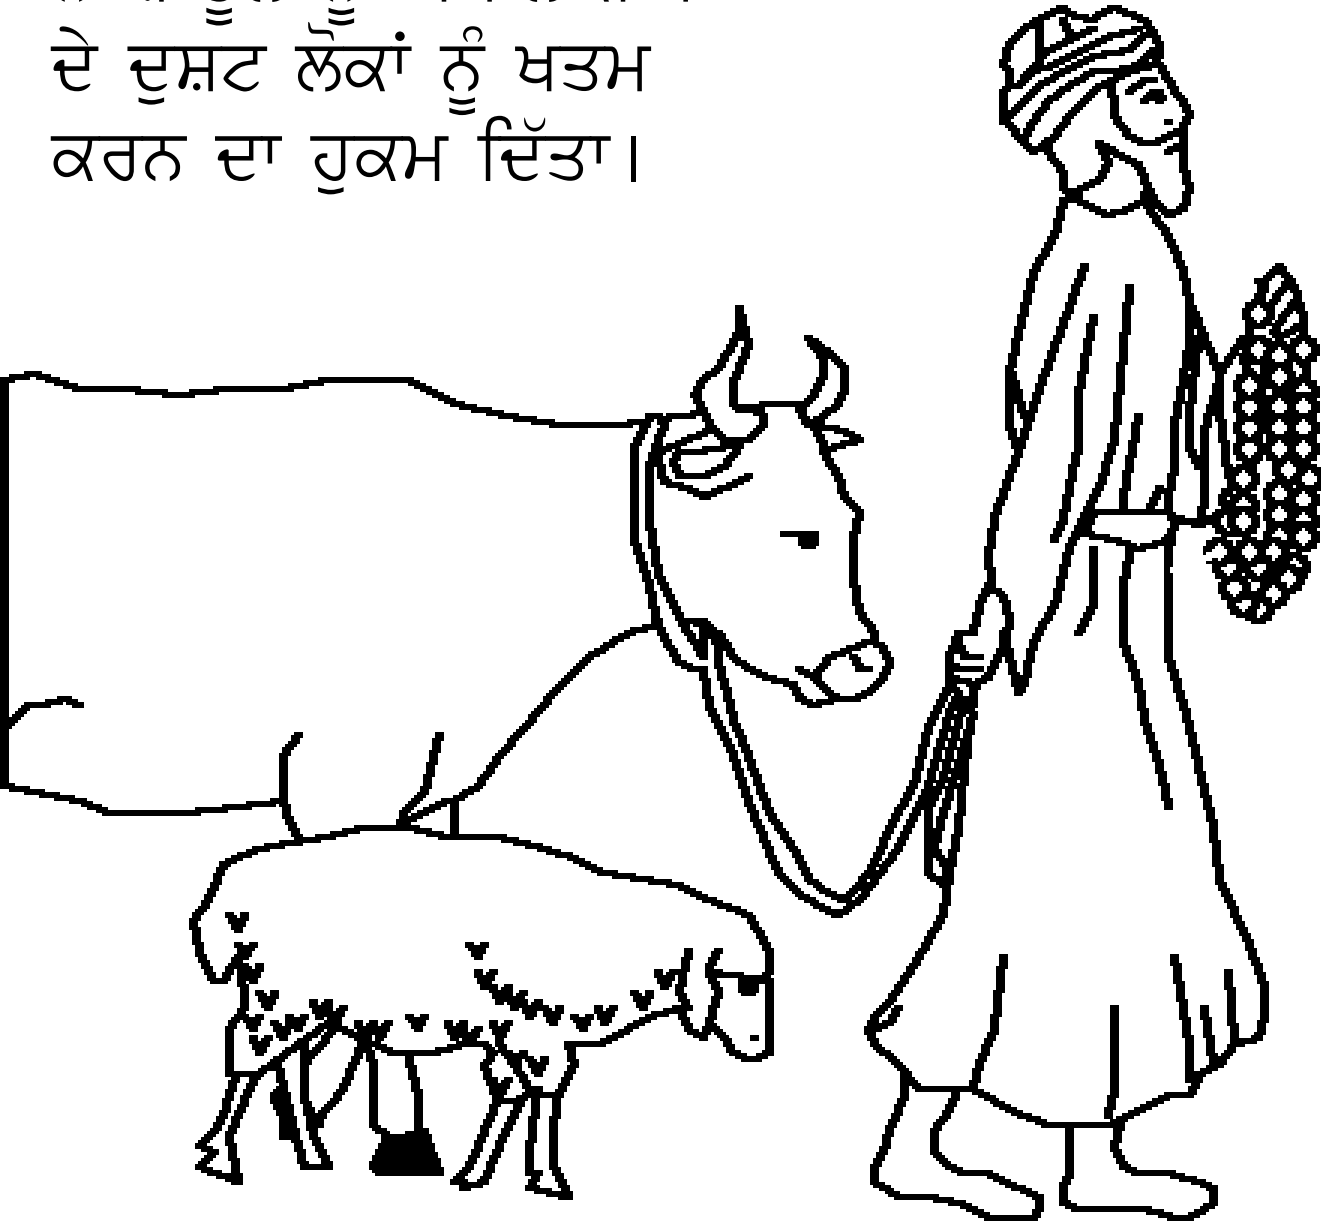 ਦੇ ਦੁਸ਼ਟ ਲੋਕਾਂ ਨੂੰ ਖਤਮ
ਕਰਨ ਦਾ ਹੁਕਮ ਦਿੱਤਾ।